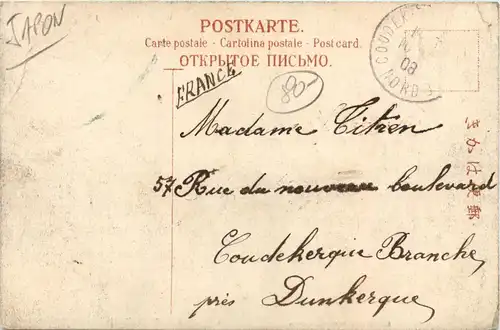 JAPON
POSTKARTE.
Carte postale - Cartolina postale - Post card.
ОТКРЫТОЕ ПИСЬМО.
FRANCE
80
COUDEK
08
NORD
きかは便郵
Madame Titren
57 Rue du nouveau boulevard
Coudekerque Branche,
près Dunkerque,